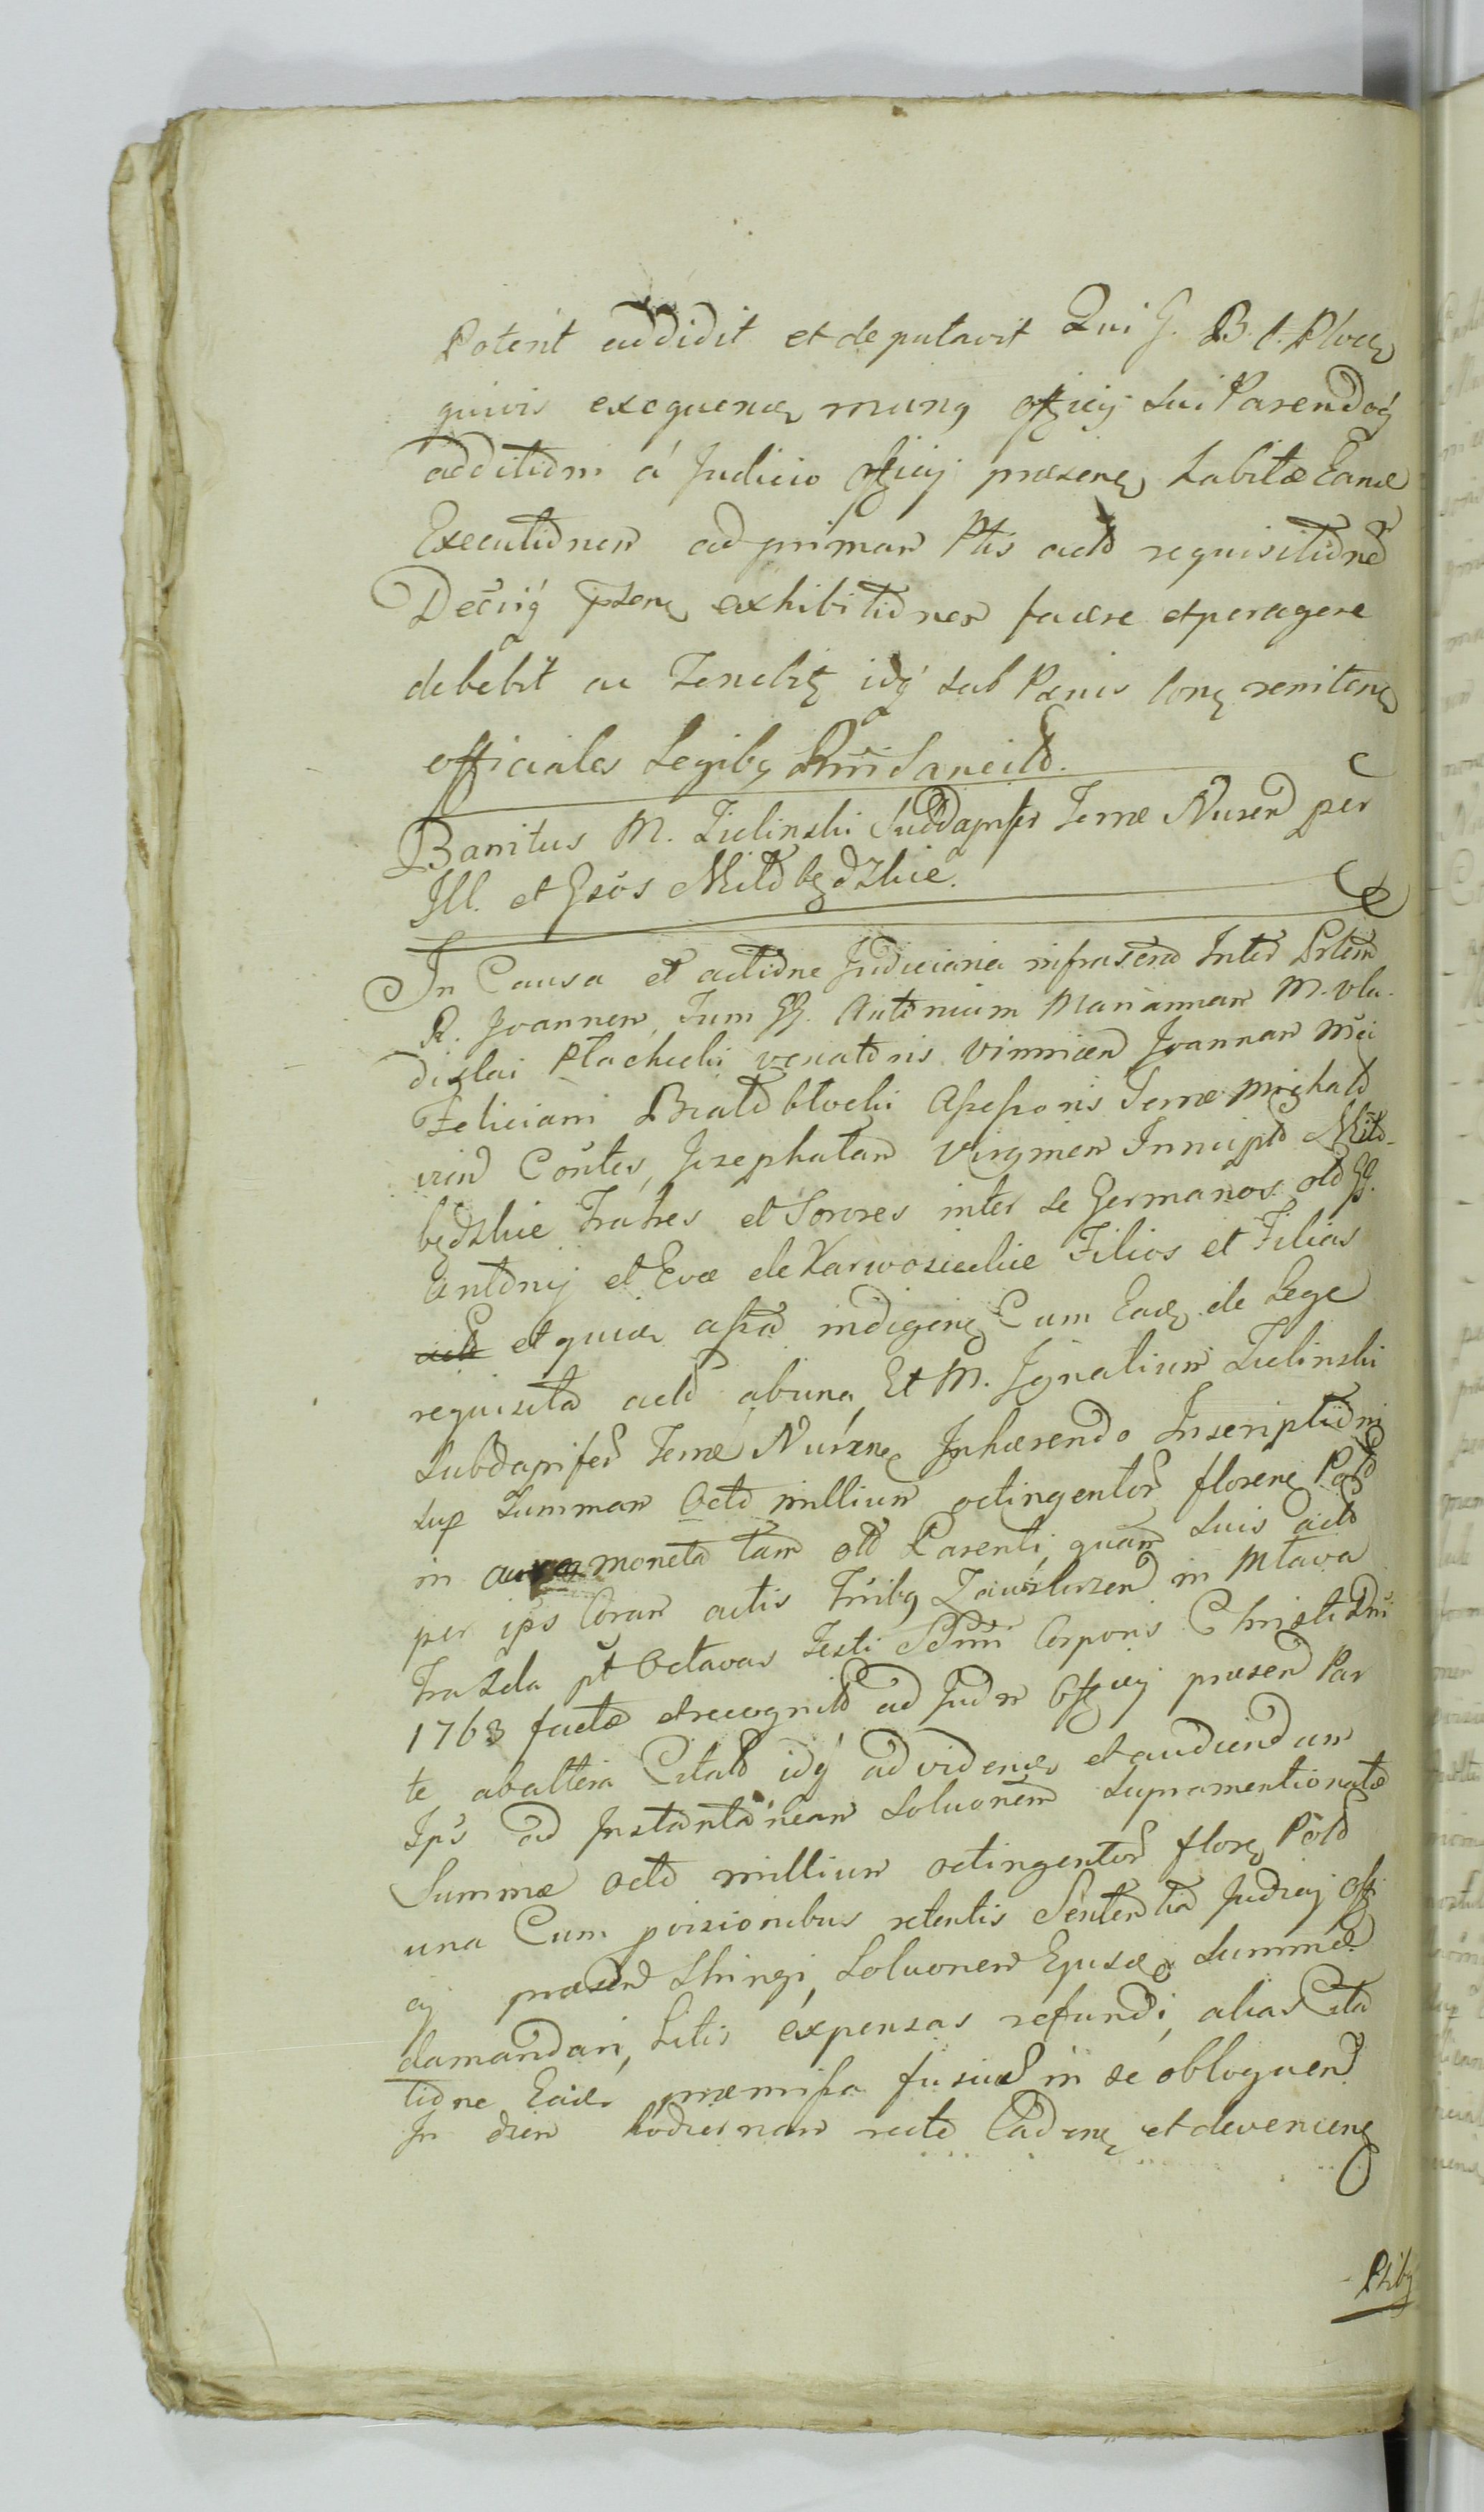 Potent addidit et deputavit Qui G. B. C. Ploce
quivis exequence muny officij Sui Parendoq
additum á Judicio officij præsene habitæ Eand
Executionem ad primam Ptis acto requisitionem
Decriq psene exhibitionem facere et peragere
debebit ac Tenebit idq sub Pænis Cone renitene
officiales Legiby Rni Sancito.
Banitus M. Zielinski Subdapifer Terræ Nurend per
Ill. et Gsos Miłobędzkie.
In Causa et actione Judiciaria infrascrip Inter Partem
R. Joannem, Tum GG. Antonium Mariannam M. Vla-
dislai Płachecki venatoris Vinnicen Joannam Mci
Feliciani Białobłocki Assessoris Terræ Michało
vien Contes, Josephatam Virginem Innupto Miło-
będzkie Fratres et Sorores inter se Germanos olo GG.
Antonij et Evæ de Karwosieckie Filios et Filias
et quæ assa indigene Cum Eade de Lege
requisita acto ab una, Et M. Ignatium Zielinski
Subdapifer Terræ Nurene Inhærendo Inscriptioni
Sup Summam Octo millium octingentor florene Polo
in moneta tam olo Parenti, quam Suis acto
per ips Coram actis Trriby Zawskrzen in Mława
Fra 2da pt Octavas Festi SSmi Corporis Christi Dni
1763 factæ et recognito ad Judm Officij præsend Par
te ab altera Citato idq ad videnes et audiendum
Ips ad Instantaneam Soluonem Supramentionatæ
Summæ octo millium octingentor flore Polo
una Cum provisionibus retentis Sententia Judicij offi
cij præsend Stringi, Soluonem Ejusde Summæ
damandari, Litis expensas refundi, alias Cita
tione Eade præmissa fusius in se obloquen
In diem hodiernam recte Cadene et deveniene
Ptiby